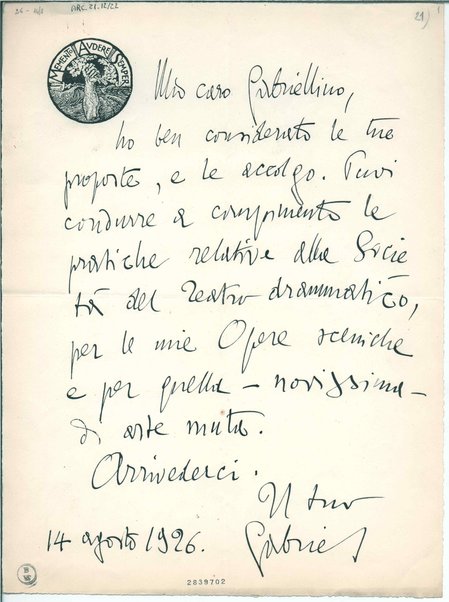 26 - 4/1 ARC. 21. 12/22
21)
MEMENTO AVDERE SEMPER
Mio caro Gabriellino,
ho ben considerato le tue
proposte, e le accolgo. Puoi
condurre a compimento le
pratiche relative alla Socie
tà del Teatro drammatico,
per le mie Opere sceniche
e per quella – novissima –
di arte muta.
Arrivederci.
Il tuo
14 agosto 1926. Gabriel
2839702